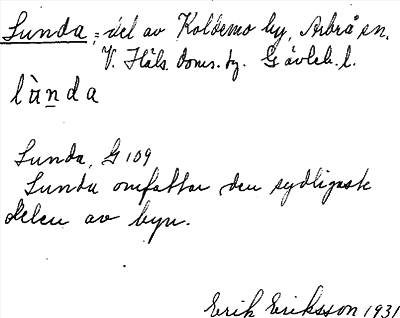 Lunda, = del av Koldemo by, Arbrå sn.
V. Häls. Doms. by. Gävleb. l.
lùnda
Lunda, G 109
Lunda omfattar den sydligaste
delen av byn.
Erik Eriksson 1931